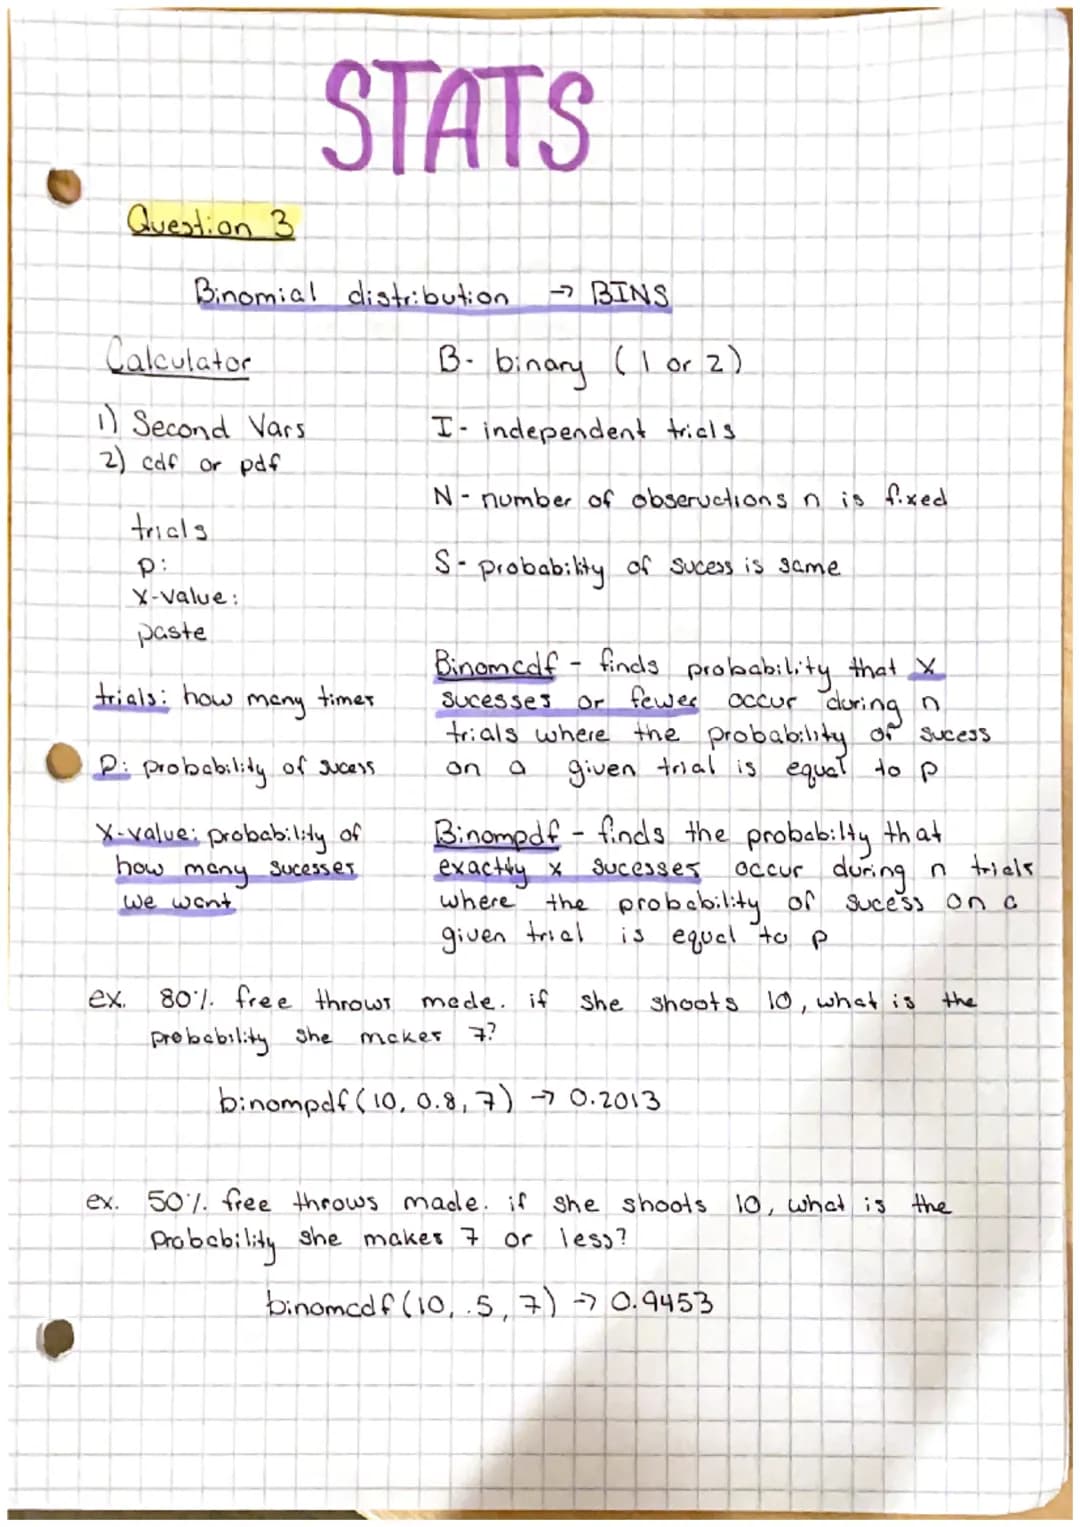 STATS
Question 3
Binomial distribution → BINS
Calculator
1) Second Vars
2) cdf or pdf
trials
p:
x-value:
paste
trials: how many times
P: probability of sucess
X-value: probability of
how many sucesses
we want
B- binary (1 or 2)
I- independent trials
N- number of observations n is fixed
S- probability of sucess is same
Binomcdf - finds probability that X
sucesses or fewer occur during n
trials where the probability of sucess
on a given trial is equal to p
Binompdf - finds the probabilty that
exactly x sucesses occur during n trials
where the probability of sucess on a
given trial is equal to p
ex. 80% free throws made. if she shoots 10, what is the
probability she makes 7?
binompdf(10, 0.8, 7) → 0.2013
ex. 50% free throws made. if she shoots 10, what is the
Probability she makes 7 or less?
binomcdf(10, .5, 7) → 0.9453